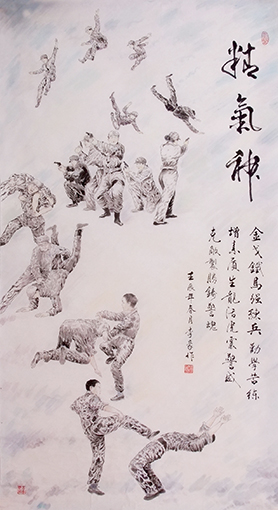 精氣神
金戈鐵馬強練兵勤學苦練
增素質生龍活虎震警威
克敵製勝鑄警魂
壬辰年春月李
作